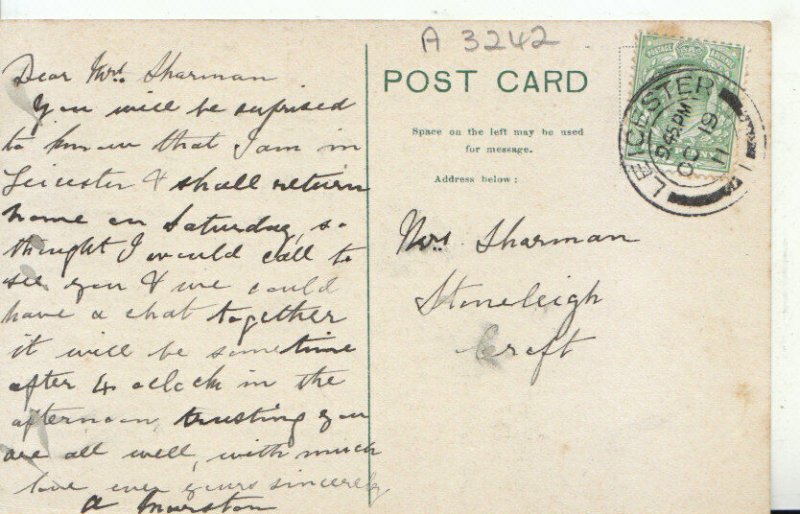 Dear Mrs. Sharman
You will be suprised
to know that I am in
Leicester & shall return
home on Saturday, so
thought I would call to
see you & we could
have a chat together
it will be sometime
after 4 oclock in the
afternoon, trusting you
are all well, with much
love ever yours sincerely
A Marston
A 3242
POST CARD
Space on the left may be used
for message.
Address below:
Mrs. Sharman
Stoneleigh
Croft
POSTAGE
LEICESTER
9.45 PM
OC 19
11